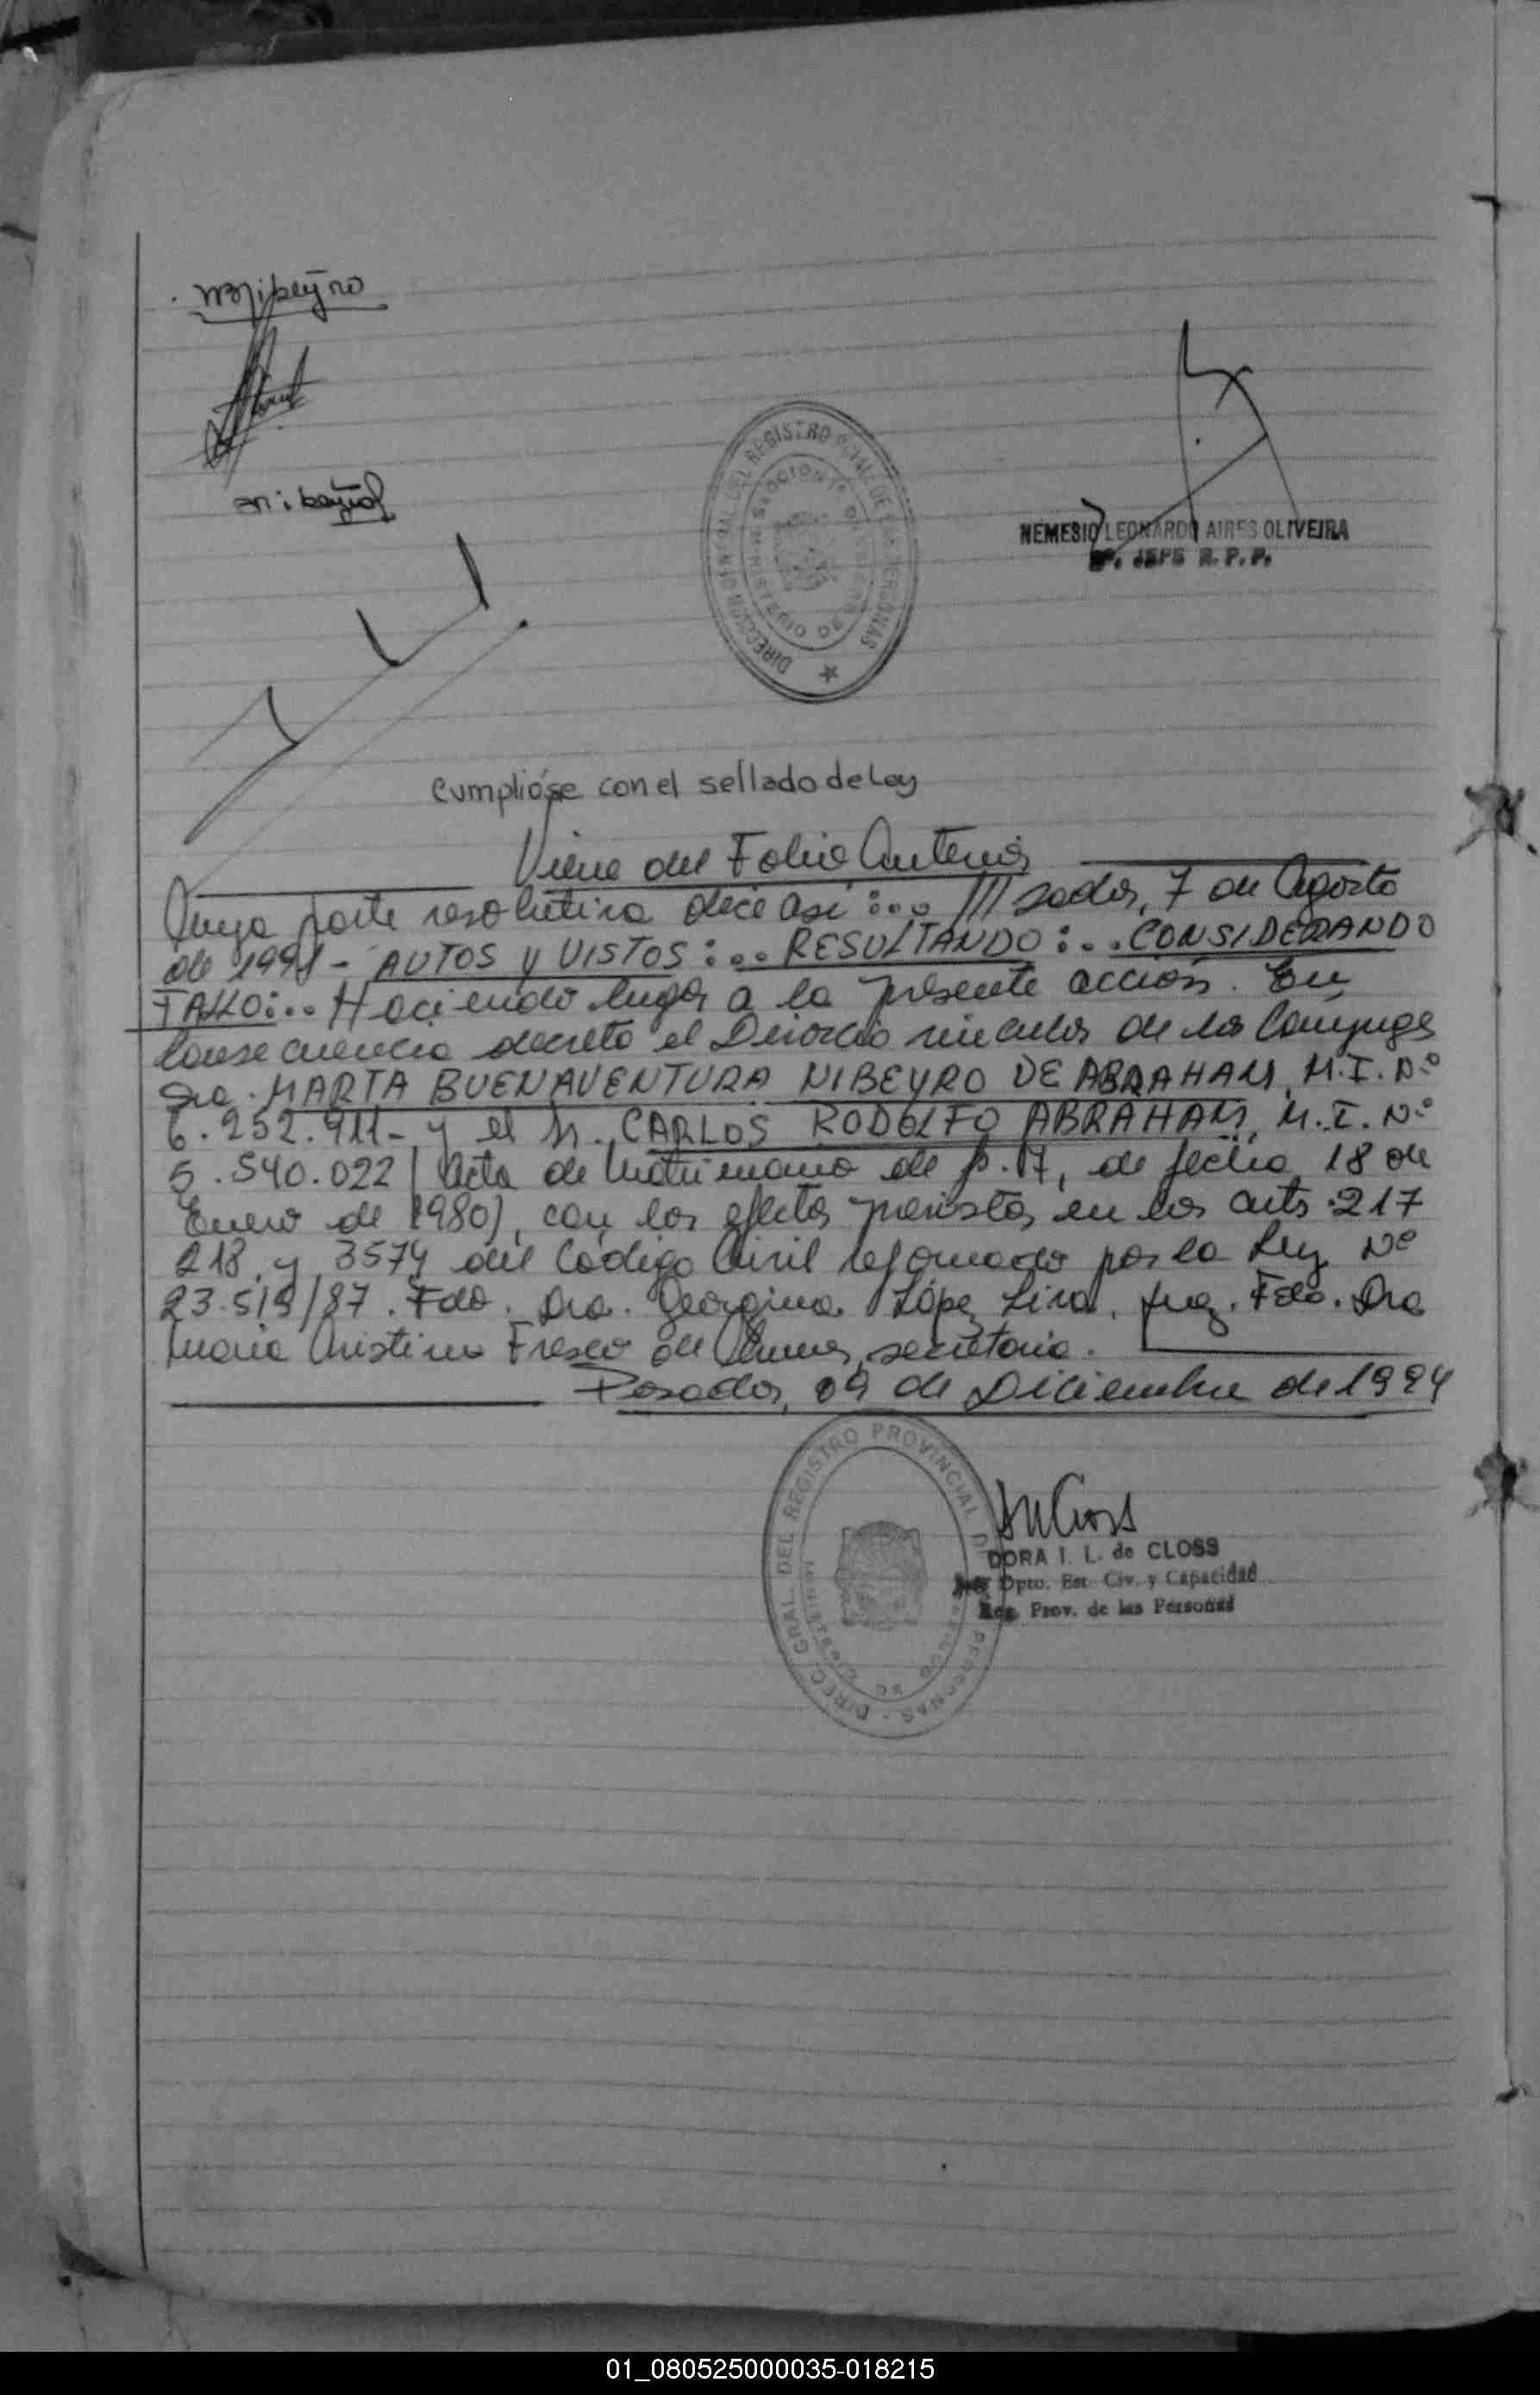 Mibeyro
Nibeyro
DIRECCION GENERAL DEL REGISTRO PCIAL. DE LAS PERSONAS
MINISTERIO DE
NEMESIO LEONARDO AIRES OLIVEIRA
JEFE R.P.P.
Cumplióse con el sellado de Ley
Viene del Folio Anterior
Cuya parte resolutiva dice así:... ///sadas, 7 de Agosto
de 1991 - AUTOS y VISTOS:... RESULTANDO:... CONSIDERANDO
FALLO:... Haciendo lugar a la presente acción. En
Consecuencia decreto el Divorcio vincular de los Conyuges
Sra. MARTA BUENAVENTURA NIBEYRO DE ABRAHAM, M.I. Nº
6.252.911- y el Sr. CARLOS RODOLFO ABRAHAM, M.I. Nº
5.540.022 (Acta de Matrimonio de p. 17, de fecha 18 de
Enero de 1980), con los efectos previstos en los arts. 217
218 y 3574 del Código Civil reformado por la Ley Nº
23.515/87. Fdo. Dra. Georgina López Liva, Juez. Fdo. Dra
Maria Cristina Fresco de, secretaria.
Posadas, 09 de Diciembre de 1994
DIREC. GRAL. DEL REGISTRO PROVINCIAL DE PERSONAS
MINISTERIO DE
DORA I. L. de CLOSS
Jefe Dpto. Est. Civ. y Capacidad
Reg. Prov. de las Personas
01_080525000035-018215